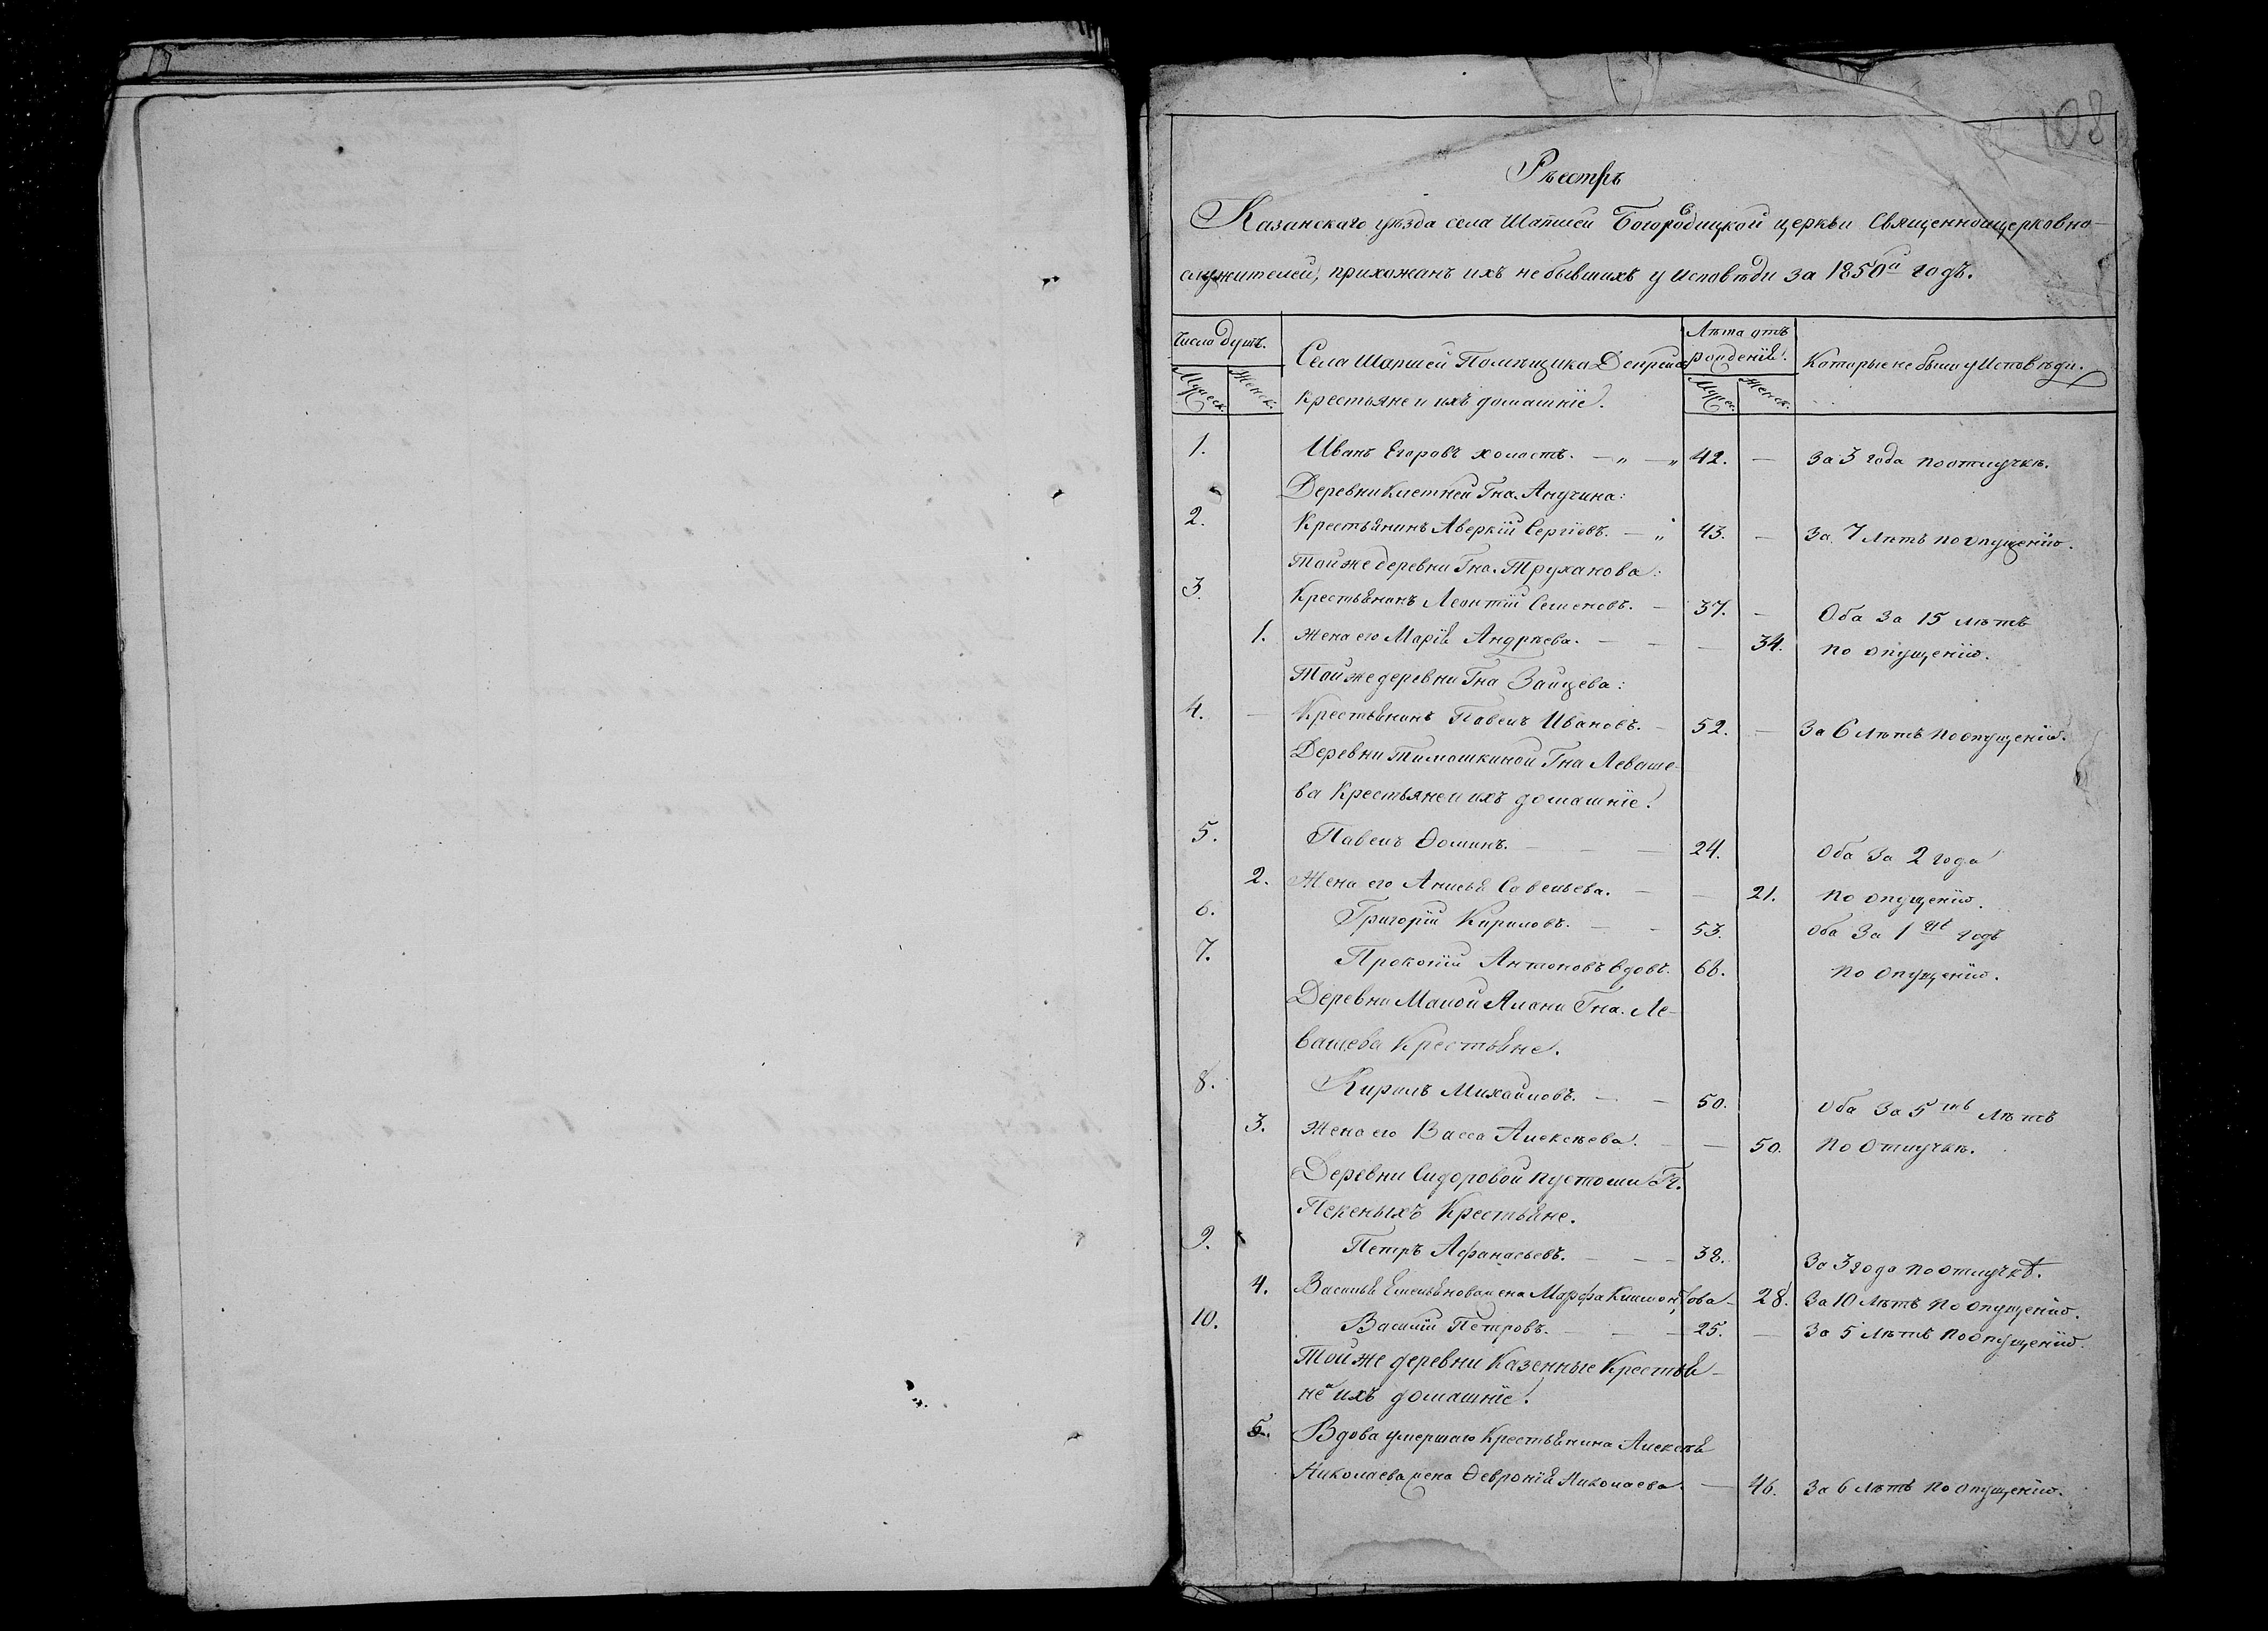 108
Рѣестръ
Казанскаго уѣзда села Шапшей Богородицкой церкви Священноицерковно-
служителей, прихожанъ ихъ небывшихъ у Исповѣди за 1850й годъ.
Число душъ.
Мужеск.
Женск.
Села Шапшей Помѣщика Депрейса
Крестьяне и ихъ домашніе.
Лѣта отъ
рожденія.
Мужес.
Женск.
Которые не были у Исповѣди.
1. Иванъ Егоровъ холостъ. — „ — „ 42. — За 3 года по отлучкѣ.
Деревни Клетней Гна. Анучина:
2. Крестьянинъ Аверкій Сергіевъ. — „ 43. — За 7 Лѣтъ по опущенію.
Тойже деревни Гна. Труханова:
3. Крестьянинъ Леонтій Семеновъ. — 37. — Оба За 15 лѣтъ
1. Жена его Марія Андрѣева. — — — 34. по опущенію.
Тойже деревни Гна Зайцева:
4. — Крестьянинъ Павелъ Ивановъ. — 52. — За 6 Лѣтъ по опущенію.
Деревни Тимошкиной Гна Леваше-
ва Крестьяне и ихъ домашніе.
5. Павелъ Ѳоминъ. — — — 24. Оба За 2 года
2. Жена его Анисья Савельева. — — 21. по опущенію.
6. Григорій Кириловъ. — — 53. Оба За 1й годъ
7. Прокопій Антоновъ вдовъ. 68. по опущенію.
Деревни Малой Алани Гна. Ле-
вашева Крестьяне.
8. Кирилъ Михайловъ. — — 50. Оба За 5ть Лѣтъ
3. Жена его Васса Алексѣева. — — 50. по Отлучкѣ.
Деревни Сидоровой пустоши Гг.
Пекеныхъ Крестьяне.
9. Петръ Афанасьевъ. — — — 38. За 3 года по отлучкѣ.
4. Василья Емельянова жена Марфа Климонтова — 28. За 10 Лѣтъ по опущенію.
10. Василій Петровъ. — — — 25. — За 5 Лѣтъ по опущенію.
Тойже деревни Казенные Крестья-
не и ихъ домашніе.
5. Вдова умершаго Крестьянина Алексѣя
Николаева жена Ѳевронія Николаева. — 46. За 6 лѣтъ по опущенію.